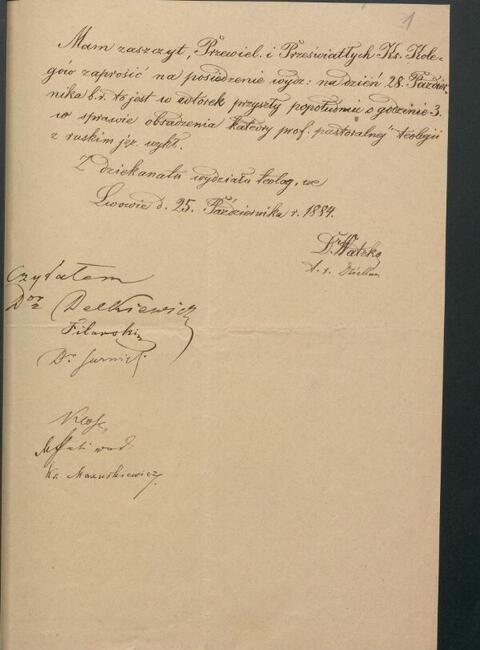 1
Mam zaszczyt, Przewiel. i Przeświatłych Ks. Kole-
gów zaprosić na posiedzenie wydz. na dzień 28. Paździer-
nika b. r. to jest w wtórek przyszły popołudniu o godzinie 3.
w sprawie obsadzenia katedry prof. pastoralnej teologii
z ruskim jęz. wykł.
Z dziekanatu wydziału teolog. we
Lwowie d. 25. Października r. 1884.
Dr Watzka
Czytałem
Delkiewicz
Filarski
Dr
Kloss
Ks. Mazurkiewicz